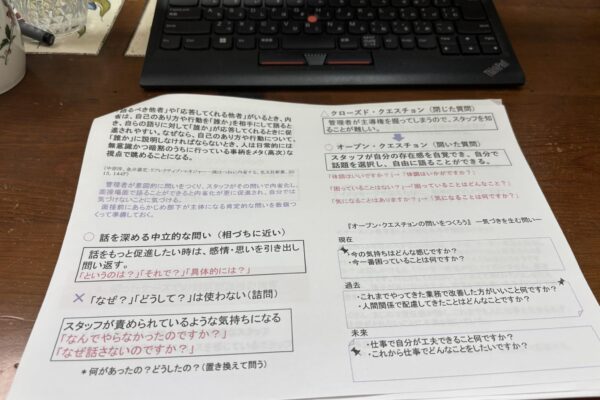 ThinkPad
語るべき他者」や「応答してくれる他者」がいるとき、内
省は、自己のあり方や行動を「誰か」を相手にして語ると
き、自らの語りに対して「誰か」が応答してくれるときに促
進されやすい。なぜなら、自己のあり方や行動について、
「誰か」に説明しなければならないとき、人は日常的には
無意識かつ暗黙のうちに行っている事柄をメタ(高次)な
視点で眺めることになる。
管理者が意図的に問いをつくり、スタッフがその問いで内省したり、
面接場面で語ることができると内省も十分に促され、自分では
気づけないことに気づける。
面接前にあらかじめ部下が主体になる肯定的な問いを数個つ
くって準備しておく。
○ 話を深める中立的な問い (相づちに近い)
話をもっと促進したい時は、感情・思いを引き出し
問い返す。
「というのは?」「それで?」「具体的には?」
× 「なぜ?」「どうして?」は使わない(詰問)
スタッフが責められているような気持ちになる
「なんでやらなかったのですか?」
「なぜ話さないのですか?」
*何があったの?どうしたの?(置き換えて問う)
△ クローズド・クエスチョン (閉じた質問)
管理者が主導権を握ってしまうので、スタッフを知
ることが難しい。
○ オープン・クエスチョン (開いた質問)
スタッフが自分の存在感を自覚でき、自分で
話題を選択し、自由に語ることができる。
「体調はいいですか?」→「体調はいかがですか?」
「困っていることはない?」→「困っていることはどんなこと?」
「気になることはありますか?」→「気になることは何ですか?」
『オープン・クエスチョンの問いをつくろう』 ―気づきを生む問い―
現在
・今の気持ちはどんな感じですか?
・今一番困っていることは何ですか?
過去
・これまでやってきた業務で改善した方がいいこと何ですか?
・人間関係で配慮してきたことはどんなことですか?
未来
・仕事で自分が工夫できること何ですか?
・これから仕事でどんなことをしたいですか?